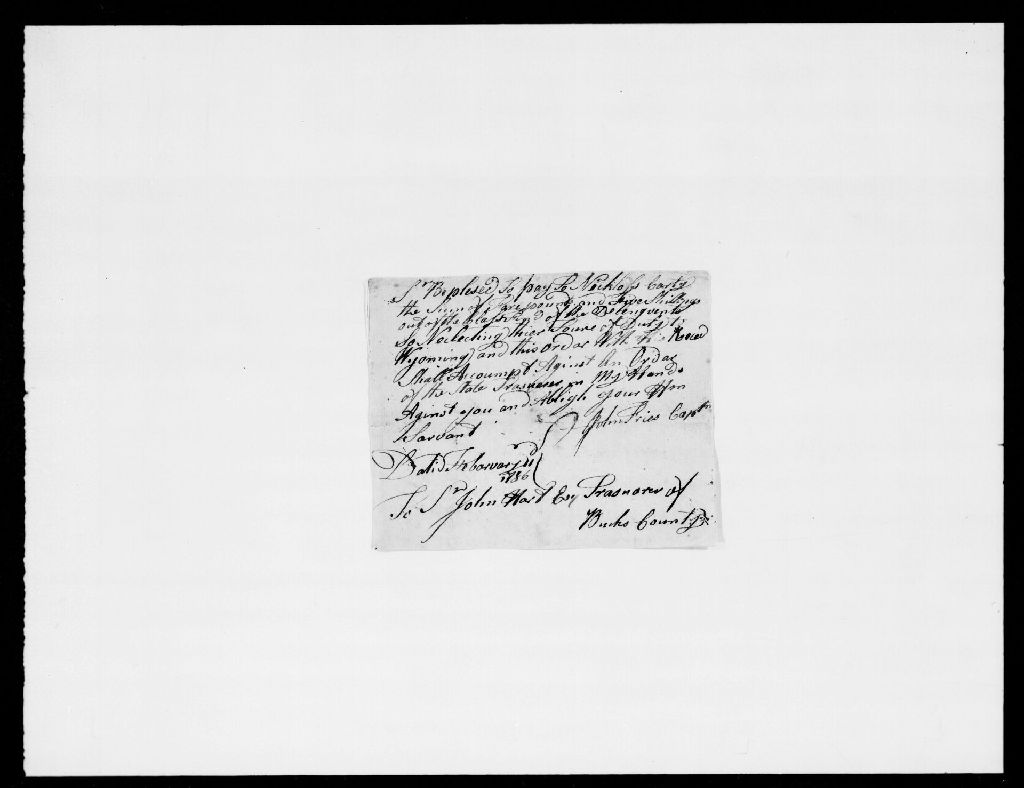 Sr Beplesed To pay To Nicklos Carty
the Sum of five pound and five Shillings
out of the Class fund of the Delenquents
So Neclecting thier Toure of Duty to
Wyoming and this order With his Reced
Shall Accoumpt Aginst An Order
of the State Trasuerer in My Hands
Aginst you and Abligh your Hbn
Sarvant John Fries Captn
Datid Febarary ye 11
1786
To Sr John Hart Esq Trasuorer of
Bucks County